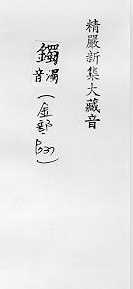 精嚴新集大藏音
鐲濁音(金部)